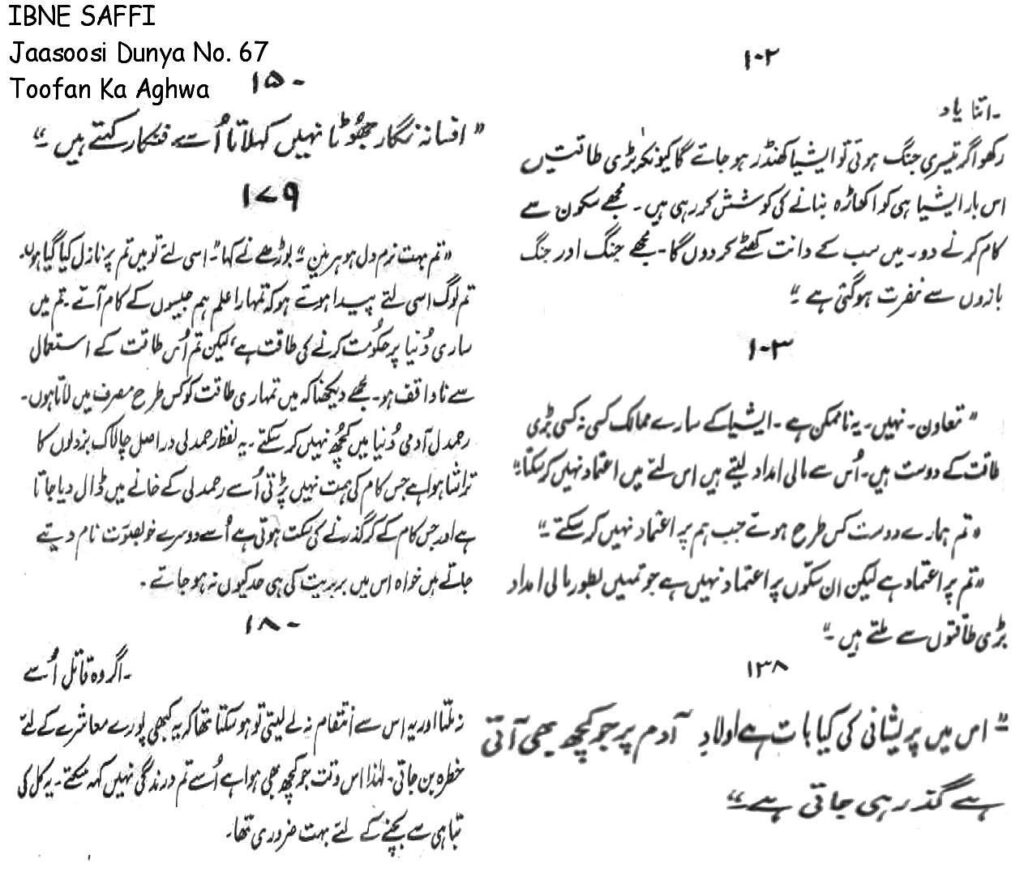 IBNE SAFFI
Jaasoosi Dunya No. 67
Toofan Ka Aghwa
۱۰۲
۔ اتنا یاد
رکھو اگر تیسری جنگ ہوئی تو ایشیا کھنڈر ہو جائے گا کیونکہ بڑی طاقتیں
اس بار ایشیا ہی کو اکھاڑہ بنانے کی کوشش کر رہی ہیں ۔ مجھے سکون سے
کام کرنے دو ۔ میں سب کے دانت کھٹے کر دوں گا ۔ مجھے جنگ اور جنگ
بازوں سے نفرت ہو گئی ہے ۔"
۱۰۳
" تعاون ۔ نہیں ۔ یہ ناممکن ہے ۔ ایشیا کے سارے ممالک کسی نہ کسی بڑی
طاقت کے دوست ہیں ۔ اُس سے مالی امداد لیتے ہیں اس لئے میں اعتماد نہیں کر سکتا ۔"
" تم ہمارے دوست کس طرح ہوئے جب ہم پر اعتماد نہیں کر سکتے ۔"
" تم پر اعتماد ہے لیکن ان سکّوں پر اعتماد نہیں ہے جو تمہیں بطور مالی امداد
بڑی طاقتوں سے ملتے ہیں ۔"
۱۳۸
" اس میں پریشانی کی کیا بات ہے اولادِ آدم پر جو کچھ بھی آتی
ہے گذر ہی جاتی ہے ۔"
۱۵۰
" افسانہ نگار جھُوٹا نہیں کہلاتا اُسے فنکار کہتے ہیں ۔"
۱۷۹
" تم بہت نرم دل ہو ہرمین ۔" بوڑھے نے کہا ۔" اسی لئے تو میں تم پر نازل کیا گیا ہوں ۔
تم لوگ اسی لئے پیدا ہوئے ہو کہ تمہارا علم ہم جیسوں کے کام آئے ۔ تم میں
ساری دُنیا پر حکومت کرنے کی طاقت ہے ، لیکن تم اُس طاقت کے استعمال
سے ناواقف ہو ۔ مجھے دیکھنا کہ میں تمہاری طاقت کو کس طرح مصرف میں لاتا ہوں ۔
رحمدل آدمی دُنیا میں کچھ نہیں کر سکتے ۔ یہ لفظ رحمدلی دراصل چالاک بزدلوں کا
تراشا ہوا ہے جس کام کی ہمت نہیں پڑتی اُسے رحمدلی کے خانے میں ڈال دیا جاتا
ہے اور جس کام کے کر گذرنے کی سکت ہوتی ہے اُسے دوسرے خوبصورت نام دیئے
جاتے ہیں خواہ اس میں بربریت کی ہی حد کیوں نہ ہو جائے ۔
۱۸۰
۔ اگر وہ قاتل اُسے
نہ ملتا اور یہ اس سے انتقام نہ لے لیتی تو ہو سکتا تھا کہ یہ کبھی پورے معاشرے کے لئے
خطرہ بن جاتی ۔ لہٰذا اس وقت جو کچھ بھی ہوا ہے اُسے تم درندگی نہیں کہہ سکتے ۔ یہ کل کی
تباہی سے بچنے کے لئے بہت ضروری تھا ۔